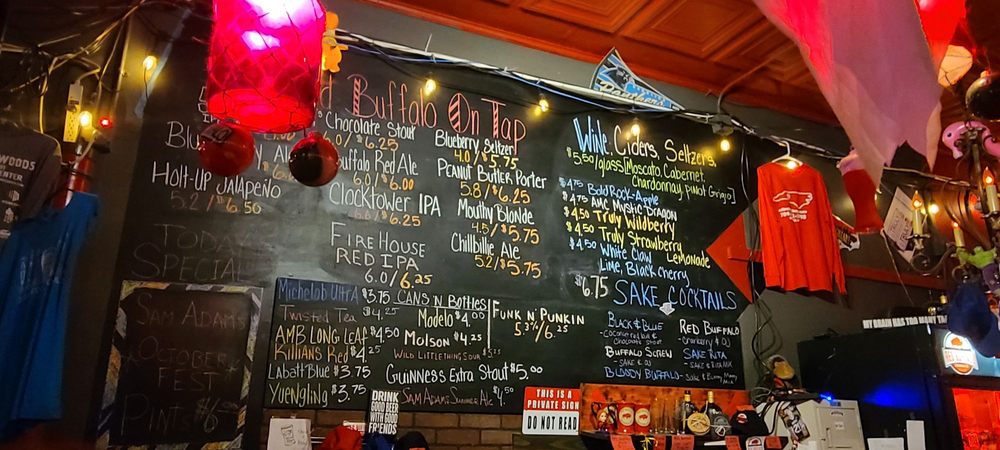 d Buffalo On Tap
Chocolate Stout
6.0/$6.25
Buffalo Red Ale
6.0/$6.00
Clocktower IPA
6.25
Fire House
Red IPA
6.0/6.25
Blueberry Seltzer
4.0/$5.75
Peanut Butter Porter
5.8/$6.25
Mouthy Blonde
4.5/$5.75
Chillbillie Ale
5.2/$5.75
Holt-Up Jalapeño
5.2/$6.50
Today's
Special
Sam Adams
October
Fest
Pint $6
Michelob Ultra $3.75
Twisted Tea $4.25
AMB Long Leaf $4.50
Killians Red $4.25
Labatt Blue $3.75
Yuengling $3.75
Cans N Bottles
Modelo $4.00
Molson $4.25
Wild Little Thing Sour $5.25
Guinness Extra Stout $5.00
Sam Adams Summer Ale $4.50
Funk N' Punkin
5.3%/6.25
Wine, Ciders, Seltzers,
$5.50/glass [Moscato, Cabernet,
Chardonnay, Pinot Grigio]
$4.75 Bold Rock-Apple
$4.75 AMC Mystic Dragon
$4.50 Truly Wildberry
$4.50 Truly Strawberry Lemonade
$4.50 White Claw
Lime, Black Cherry
$6.75 Sake Cocktails
Black & Blue
Chocolate Stout
Buffalo Screw
- Sake & OJ
Bloody Buffalo - Sake & Bloody Mary Mix
Red Buffalo
Sake Rita
Panthers
WOODS
DRINK
GOOD BEER
WITH GOOD
FRIENDS
THIS IS A
PRIVATE SIGN
DO NOT READ
MY BRAIN HAS TOO MANY TA